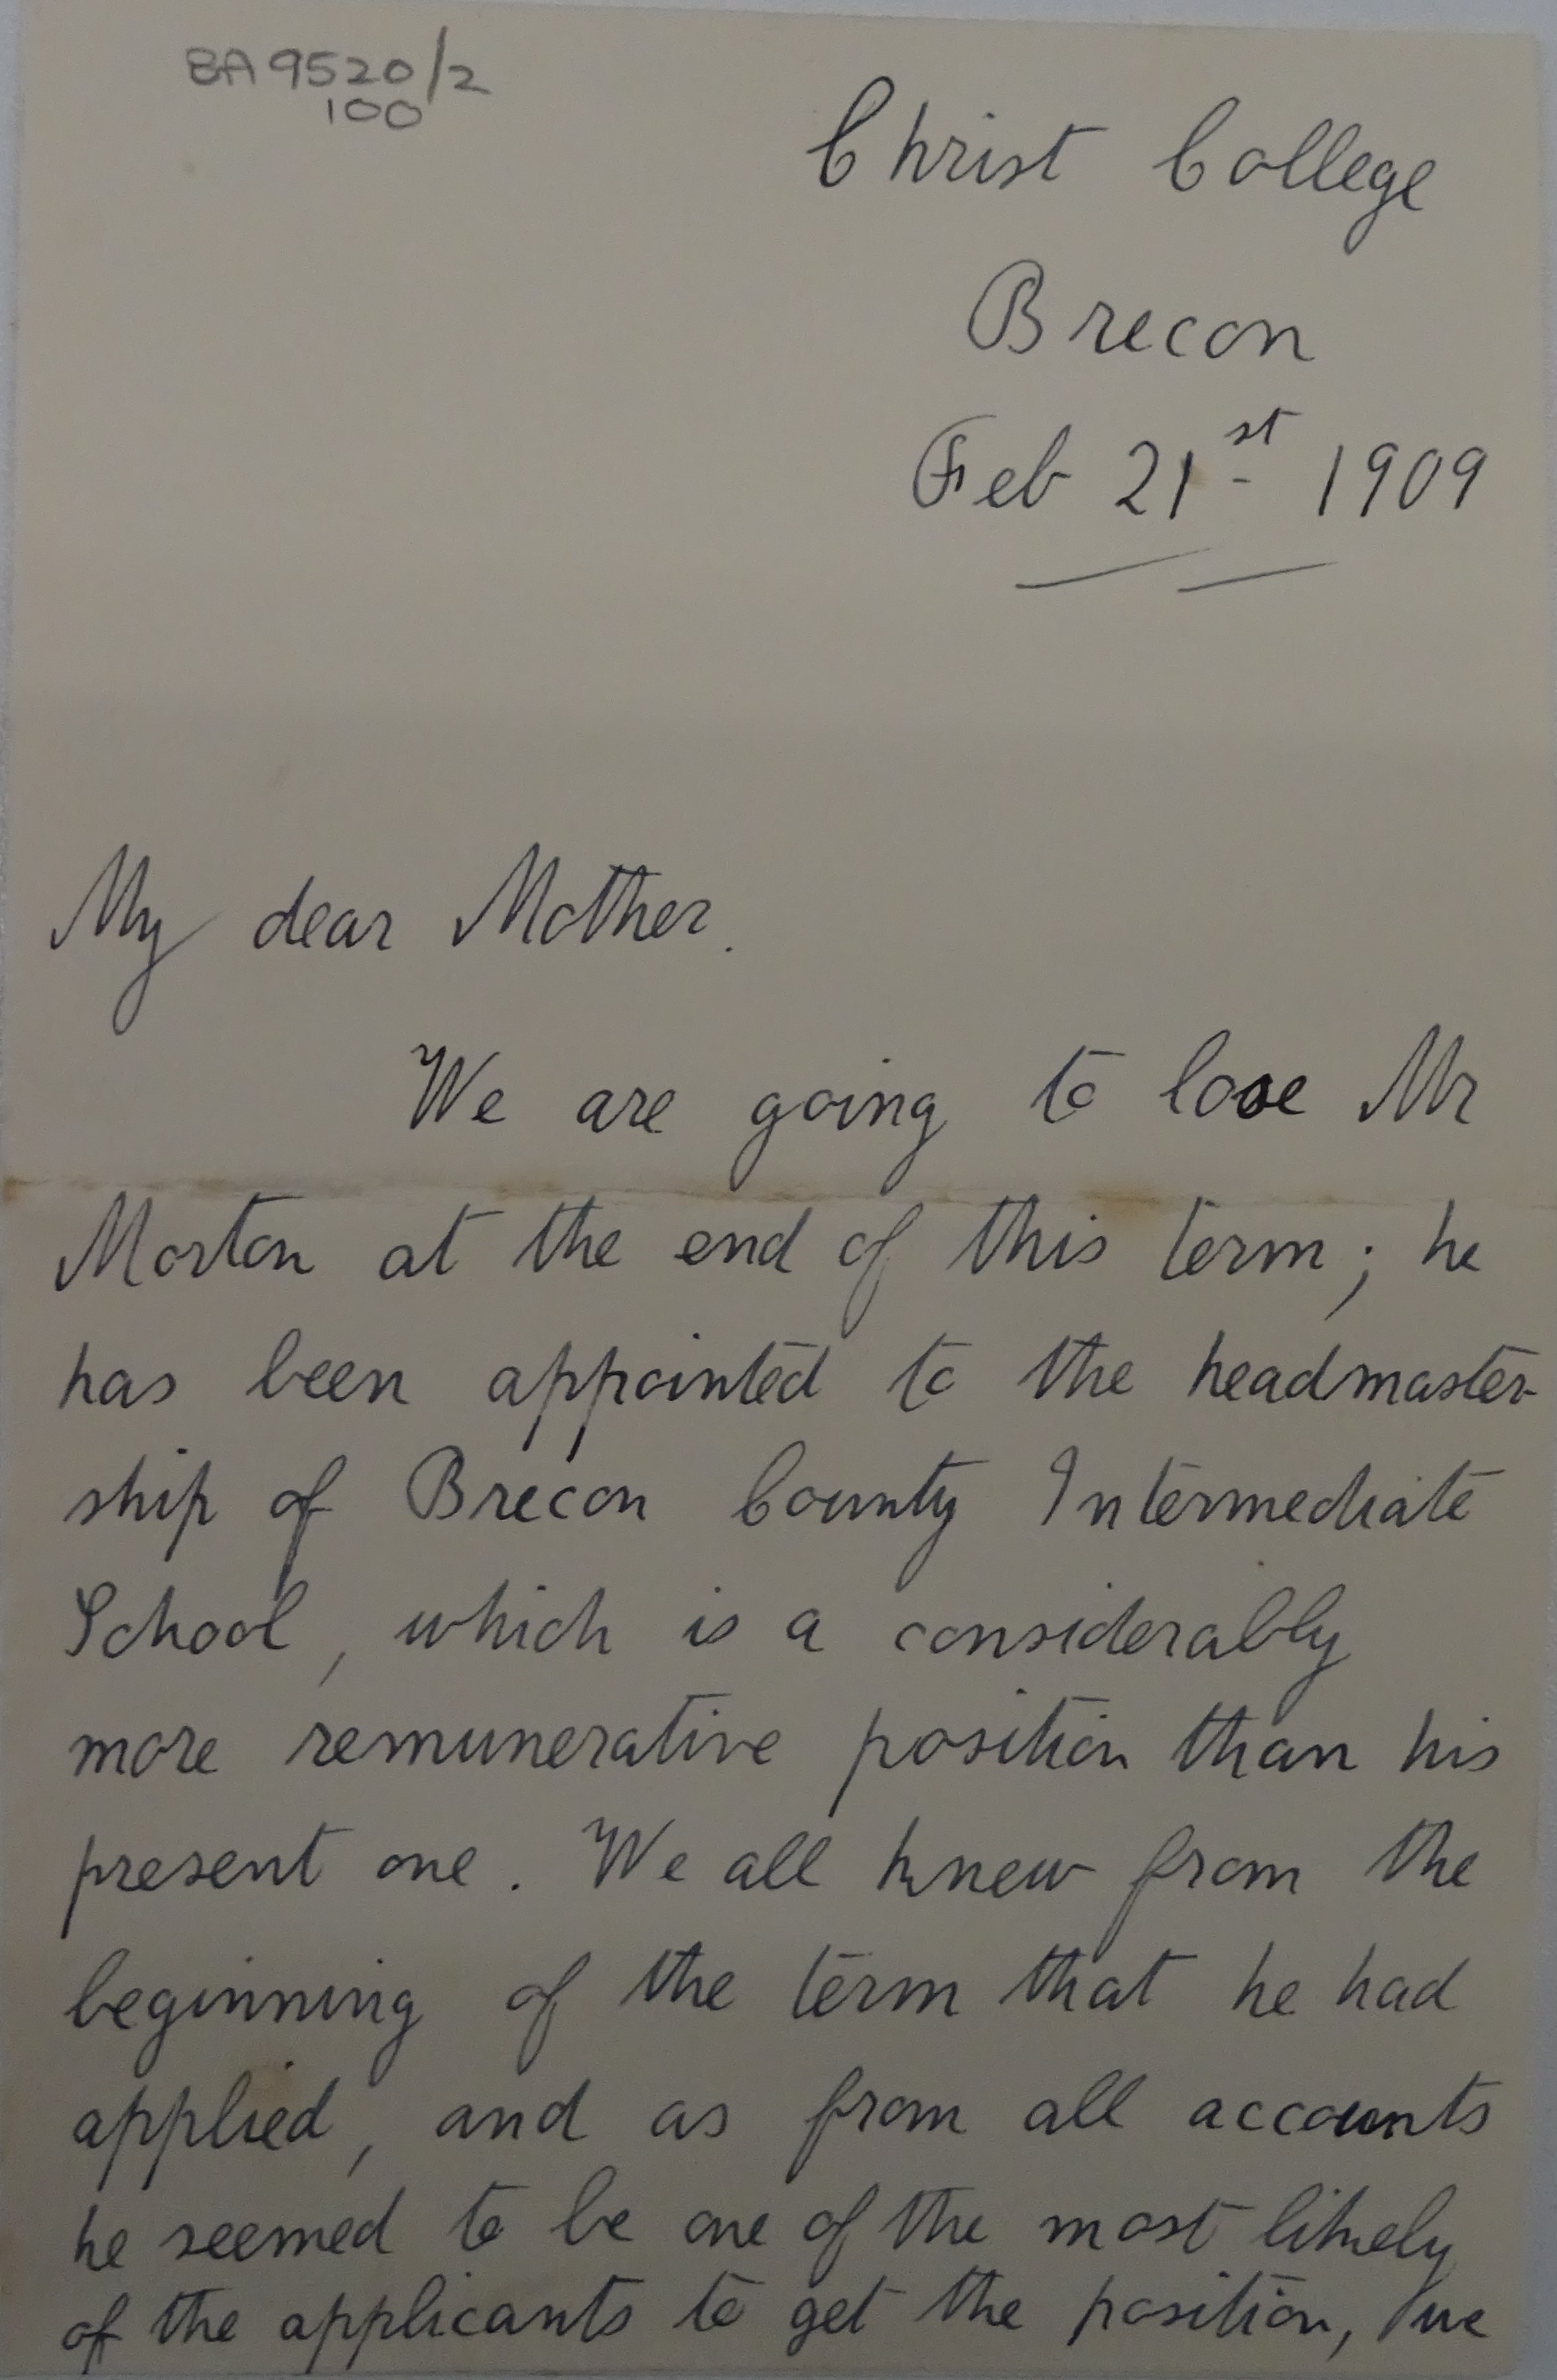 BA9520/2
100
Christ College
Brecon
Feb 21st 1909
My dear Mother.
We are going to lose Mr
Morton at the end of this term; he
has been appointed to the headmaster-
ship of Brecon County Intermediate
School, which is a considerably
more remunerative position than his
present one. We all knew from the
beginning of the term that he had
applied, and as from all accounts
he seemed to be one of the most likely
of the applicants to get the position, we